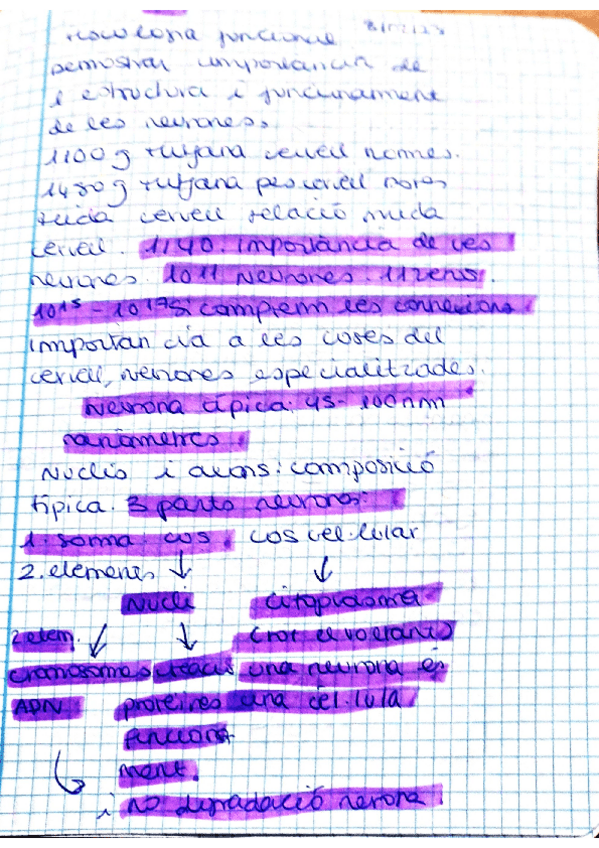 funcional
demostrar importància de
l estructura i funcionament
de les neurones.
1100 g mitjana cervell nomes.
1480 g mitjana pes cervell
cervell relació mida
cervell. 1140. importància de les
neurones. 1011 neurones.
10¹⁵ - 10¹⁷ si comptem les connexions.
importan cia a les coses del
cervell, neurones especialitzades.
Neurona típica: 45- 100 nm
nanòmetres.
Nuclis i axons: composició
típica. 3 parts neurones:
1. soma cos. cos cel·lular
2. elements ↓ ↓
Nucli citoplasma
2 elem. ↓ ↓ (tot el voltant)
cromosomes creació una neurona és
ADN proteïnes una cel·lula
funciona
ment.
i no degradació neurona.